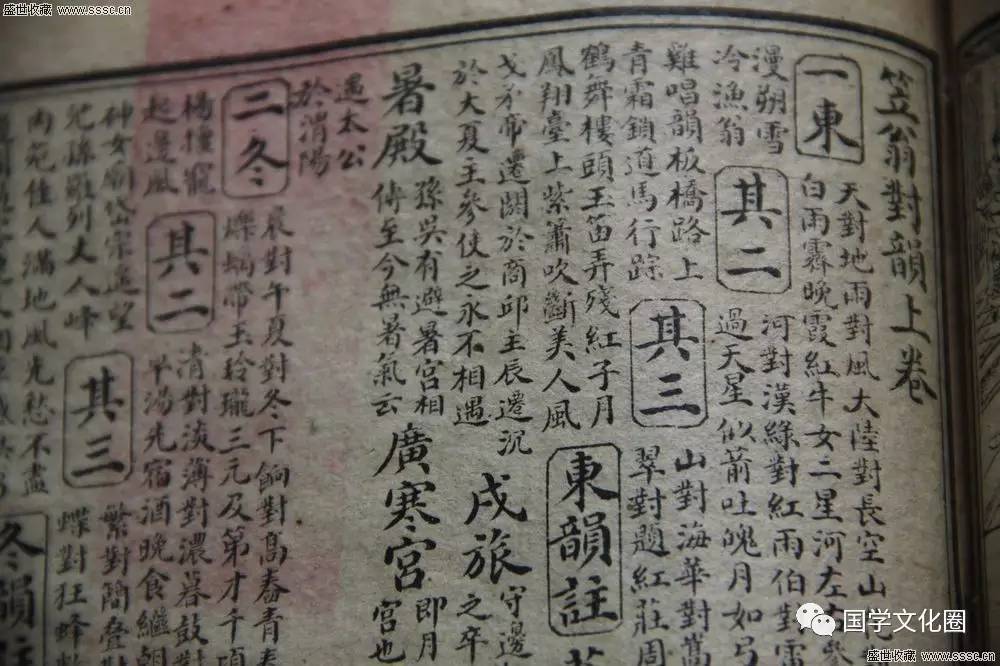 笠翁對韻上卷
一東
天對地雨對風大陸對長空山
白雨霽晚霞紅牛女二星河左
漫朔雪
冷漁翁
其二
河對漢綠對紅雨伯對雷
過天星似箭吐魄月如弓
雞唱韻板橋路上
青霜鎖道馬行踪
其三
山對海華對嵩
翠對題紅莊周
鶴舞樓頭玉笛弄殘紅子月
鳳翔臺上紫簫吹斷美人風
東韻註
戈矛帝遷閼於商邱主辰遷沉
於大夏主參使之永不相遇
戍旅
守邊
之卒
暑殿
孫吳有避暑宮相
傳至今無暑氣云
廣寒宮
即月
宮也
遇太公
於渭陽
二冬
晨對午夏對冬下餉對高舂青春
帶玉玲瓏三元及第才千頃
起邊風
其二
清對淡薄對濃暮鼓對
宿酒晚食繼朝
神女廟岱宗遙望
兒孫羅列丈人峰
其三
繁對簡疊對
蝶對狂蜂對
內苑佳人滿地風光愁不盡
冬韻註
国学文化圈
盛世收藏
www.sssc.cn
盛世收藏 www.sssc.cn
盛世收藏 www.sssc.cn